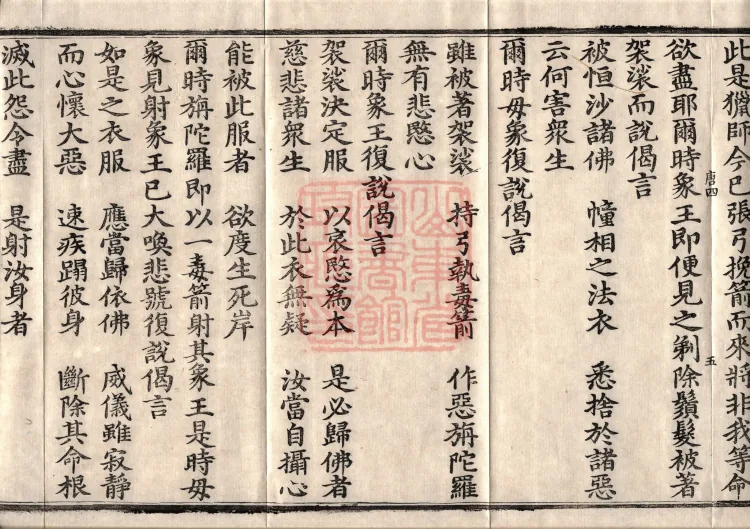 此是獵師今已張弓挽箭而來將非我等命
唐四
五
欲盡耶爾時象王即便見之剃除鬚髮被著
袈裟而說偈言
被恒沙諸佛 幢相之法衣 悉捨於諸惡
云何害衆生
爾時母象復說偈言
雖被著袈裟 持弓執毒箭 作惡旃陀羅
無有悲愍心
爾時象王復說偈言
袈裟決定服 以哀愍為本 是必歸佛者
慈悲諸衆生 於此衣無疑 汝當自攝心
能被此服者 欲度生死岸
爾時旃陀羅即以一毒箭射其象王是時母
象見射象王已大喚悲號復說偈言
如是之衣服 應當歸依佛 威儀雖寂靜
而心懷大惡 速疾蹋彼身 斷除其命根
滅此怨令盡 是射汝身者